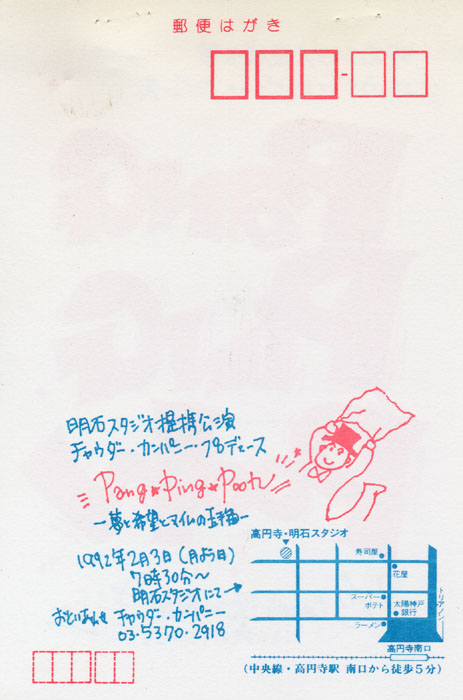 郵便はがき
明石スタジオ提携公演
チャウダー・カンパニー・プロデュース
Pang★Ping★Pooh
ー夢と希望とマイムの玉手箱ー
1992年2月3日(月よう日)
7時30分〜
明石スタジオにて→
おといあわせ チャウダー・カンパニー
03・5370・2918
高円寺・明石スタジオ
寿司屋
花屋
スーパー
ポテト
太陽神戸
銀行
トリアノン
ラーメン
高円寺南口
(中央線・高円寺駅 南口から徒歩5分)